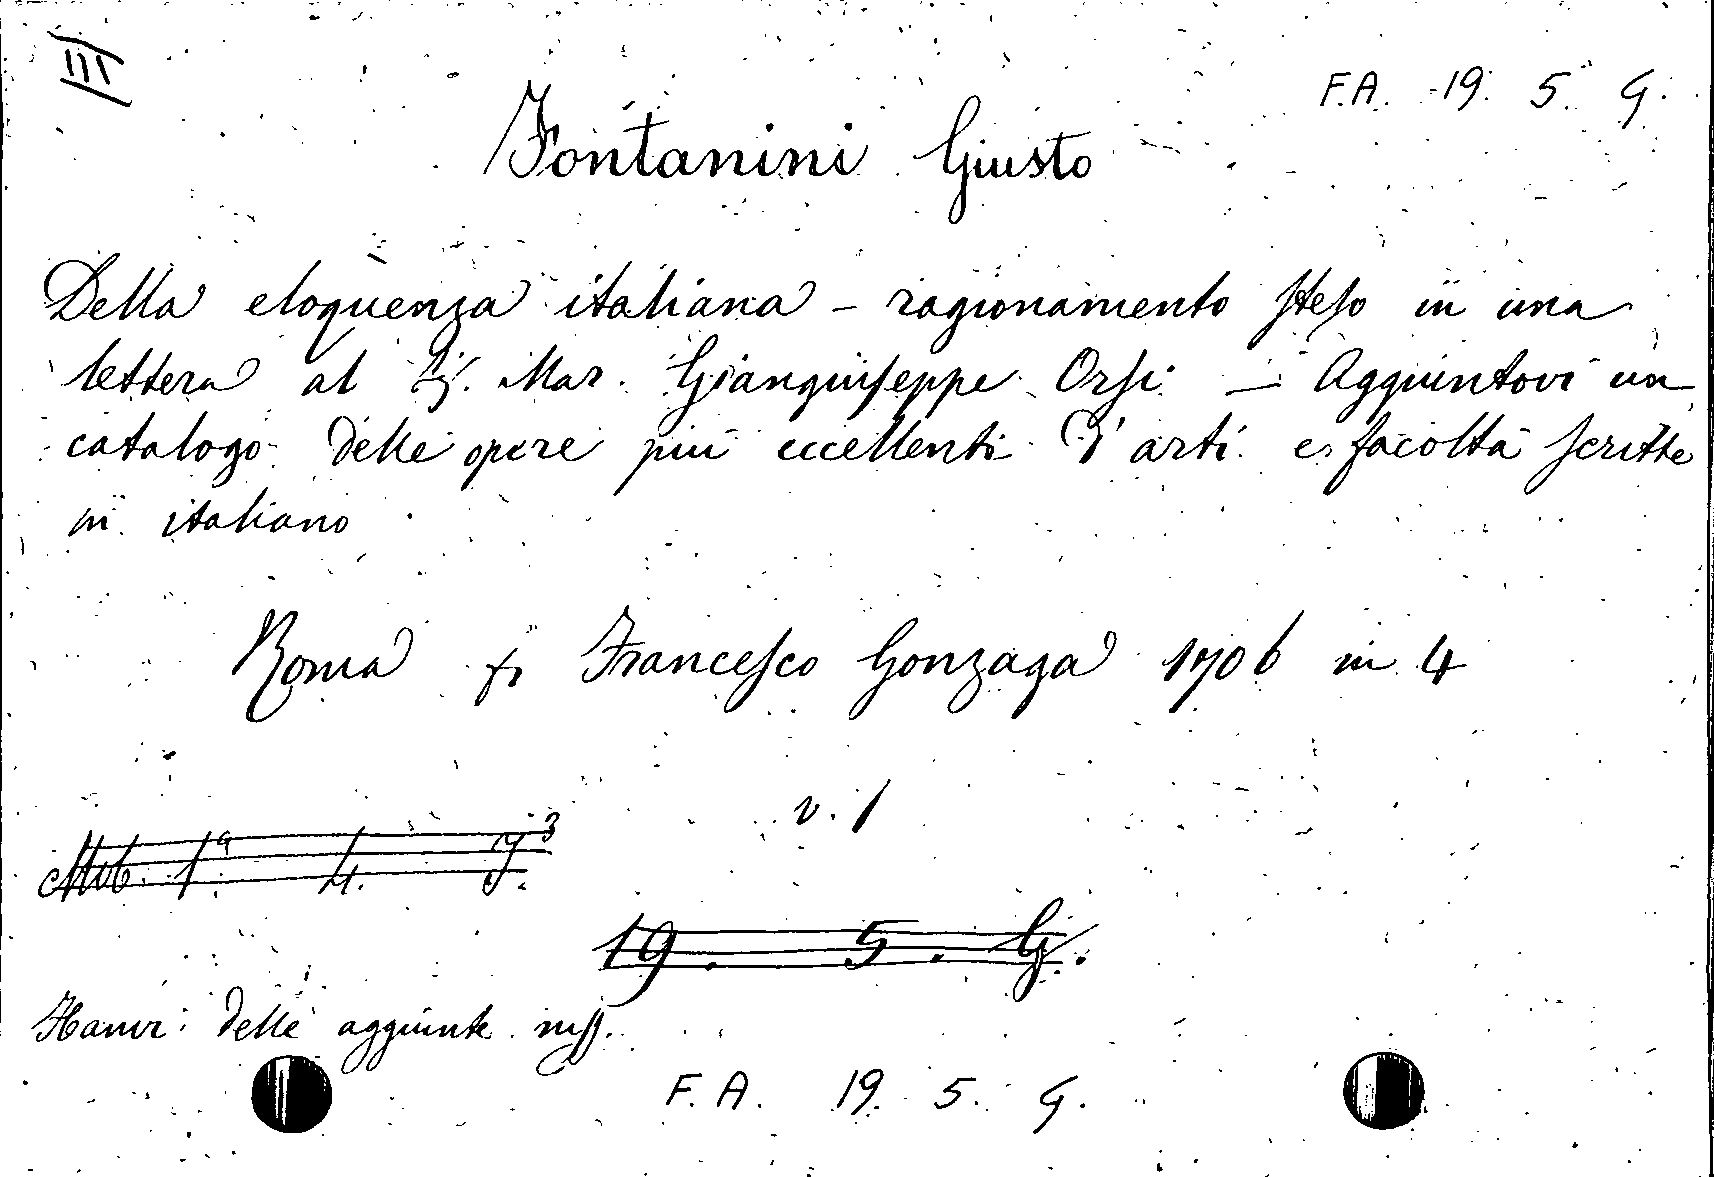 III
F.A. 19. 5. G.
Fontanini Giusto
Della eloquenza italiana - ragionamento steso in una
lettera al Sig. Mar. Giangiuseppe Orsi - Aggiuntovi un
catalogo delle opere più eccellenti d'arti e facoltà scritte
in italiano
Roma fr Francesco Gonzaga 1706 in 4
v. 1
Mib. 1ª 4. J³
19. 5. G.
Hanvi delle aggiunte mss.
F.A. 19. 5. G.